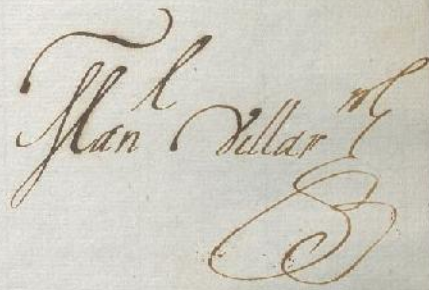 Man^l Villar^rl